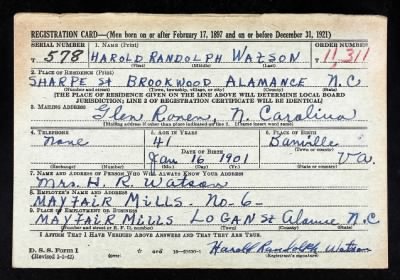 REGISTRATION CARD—(Men born on or after February 17, 1897 and on or before December 31, 1921)
SERIAL NUMBER 1. Name (Print) ORDER NUMBER
T 578 HAROLD RANDOLPH WATSON T 11,311
(First) (Middle) (Last)
2. PLACE OF RESIDENCE (Print)
SHARPE St BROOKWOOD ALAMANCE N.C
(Number and street) (Town, township, village, or city) (County) (State)
[THE PLACE OF RESIDENCE GIVEN ON THE LINE ABOVE WILL DETERMINE LOCAL BOARD
JURISDICTION; LINE 2 OF REGISTRATION CERTIFICATE WILL BE IDENTICAL]
3. MAILING ADDRESS
Glen Raven, N. Carolina
[Mailing address if other than place indicated on line 2. If same insert word same]
4. TELEPHONE 5. AGE IN YEARS 6. PLACE OF BIRTH
None 41 Danville
DATE OF BIRTH (Town or county)
Jan 16 1901 Va.
(Exchange) (Number) (Mo.) (Day) (Yr.) (State or country)
7. NAME AND ADDRESS OF PERSON WHO WILL ALWAYS KNOW YOUR ADDRESS
Mrs. H. R. Watson
8. EMPLOYER'S NAME AND ADDRESS
MAYFAIR MILLS. NO-6-
9. PLACE OF EMPLOYMENT OR BUSINESS
MAYFAIR MILLS LOGAN St N.C
(Number and street or R. F. D. number) (Town) (County) (State)
I AFFIRM THAT I HAVE VERIFIED ABOVE ANSWERS AND THAT THEY ARE TRUE.
D. S. S. Form 1
(Revised 1-1-42) (over) Harold Randolph Watson
(Registrant's signature)